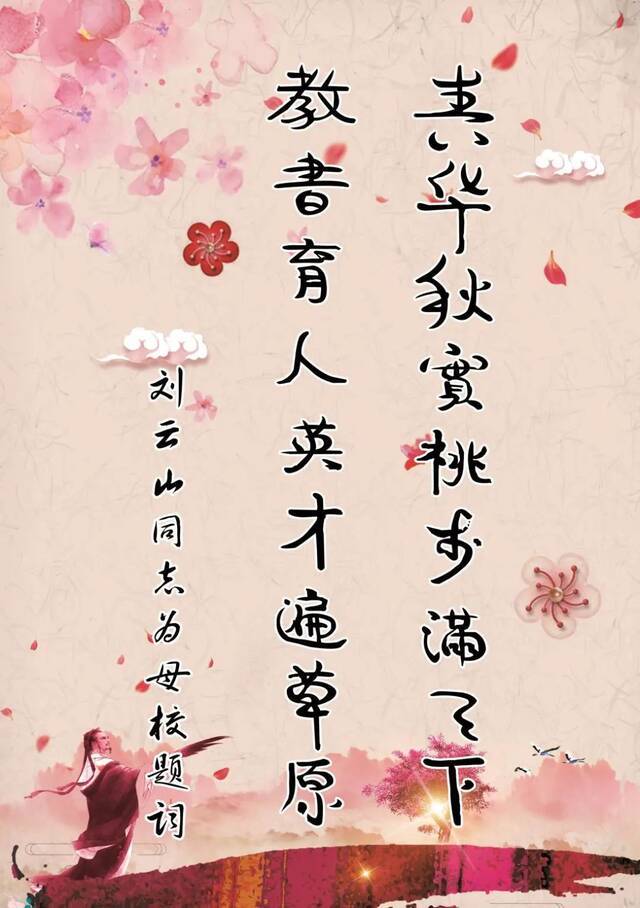 春华秋實桃李滿天下
教書育人英才遍草原
刘云山同志为母校题词